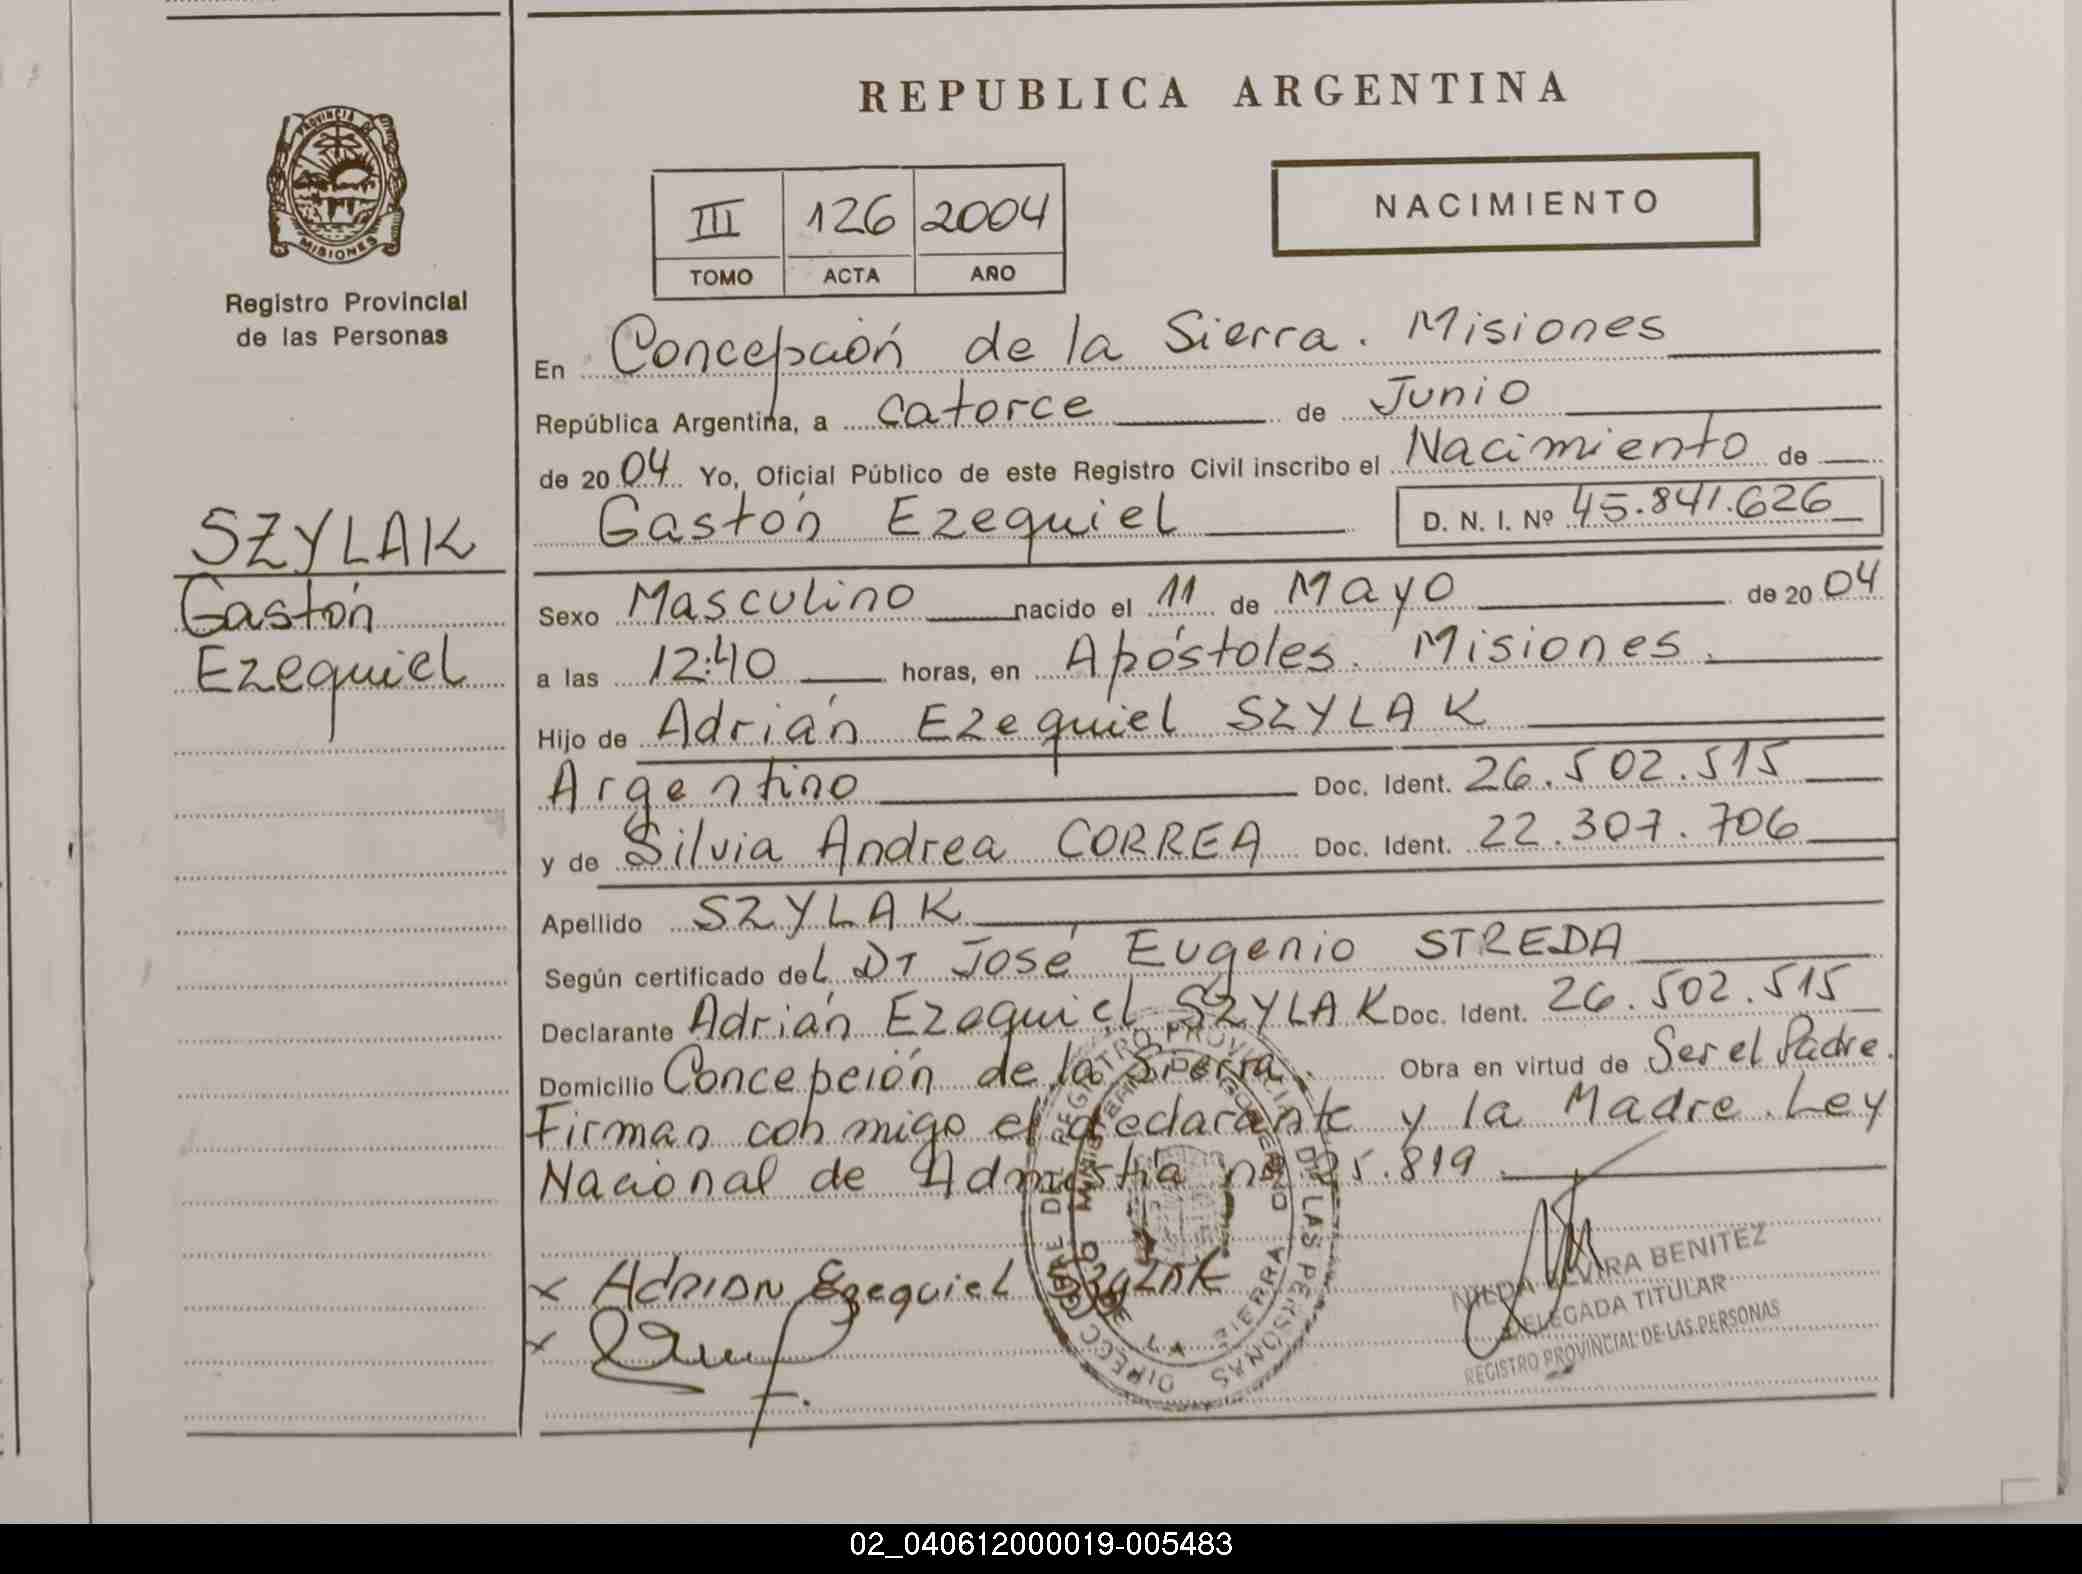 PROVINCIA DE
MISIONES
Registro Provincial
de las Personas
SZYLAK
Gastón
Ezequiel
REPUBLICA ARGENTINA
III 126 2004
TOMO ACTA AÑO
NACIMIENTO
En Concepción de la Sierra. Misiones
República Argentina, a catorce de Junio
de 2004 Yo, Oficial Público de este Registro Civil inscribo el Nacimiento de
Gastón Ezequiel D. N. I. Nº 45.841.626
Sexo Masculino nacido el 11 de Mayo de 2004
a las 12:40 horas, en Apóstoles. Misiones.
Hijo de Adrián Ezequiel SZYLAK
Argentino Doc. Ident. 26.502.515
y de Silvia Andrea CORREA Doc. Ident. 22.307.706
Apellido SZYLAK
Según certificado del Dr José Eugenio STREDA
Declarante Adrián Ezequiel SZYLAK Doc. Ident. 26.502.515
Domicilio Concepción de la Sierra. Obra en virtud de Ser el Padre.
Firman conmigo el declarante y la Madre. Ley
Nacional de Admistía nº 25.819.
x Adrian Ezequiel Szylak
x
NILDA ELVIRA BENITEZ
DELEGADA TITULAR
REGISTRO PROVINCIAL DE LAS PERSONAS
02_040612000019-005483